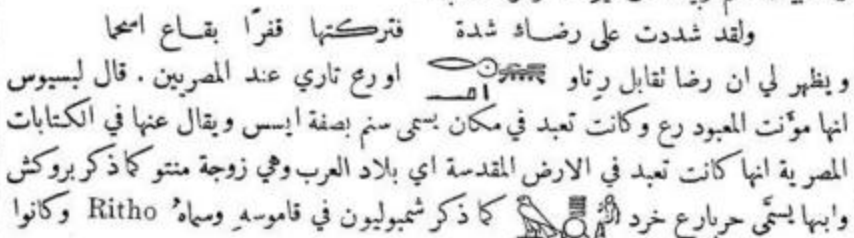 ولقد شددت على رضاء شدة فتركتها قفرًا بقاع اسحما
ويظهر لي ان رضا تقابل رتاو او رع تاري عند المصريين . قال لبسيوس
انها مؤنث المعبود رع وكانت تعبد في مكان يسمى سنم بصفة ايسس ويقال عنها في الكتابات
المصرية انها كانت تعبد في الارض المقدسة اي بلاد العرب وهي زوجة منتو كما ذكر بروكش
وابنها يسمَّى حربارع خرد كما ذكر شمبوليون في قاموسه وسماهُ Ritho وكانوا